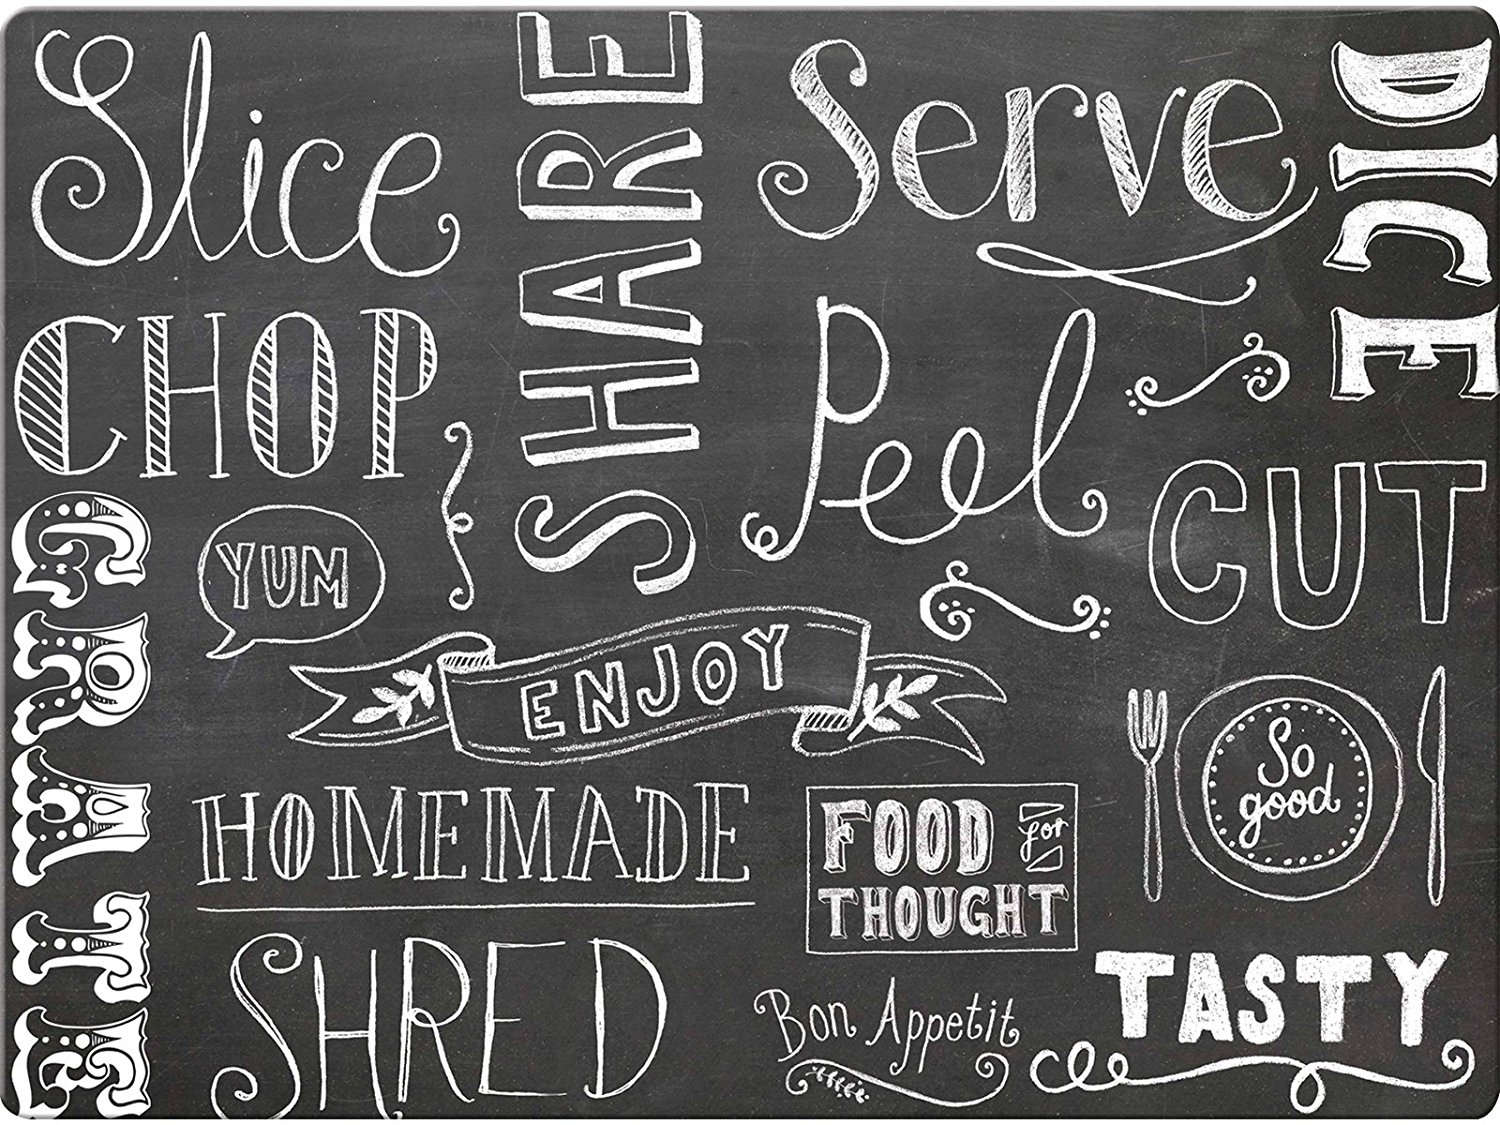 Slice
SHARE
Serve
DICE
CHOP
Peel
CUT
GRATE
YUM
ENJOY
So
good
HOMEMADE
FOOD for
THOUGHT
SHRED
Bon Appetit
TASTY